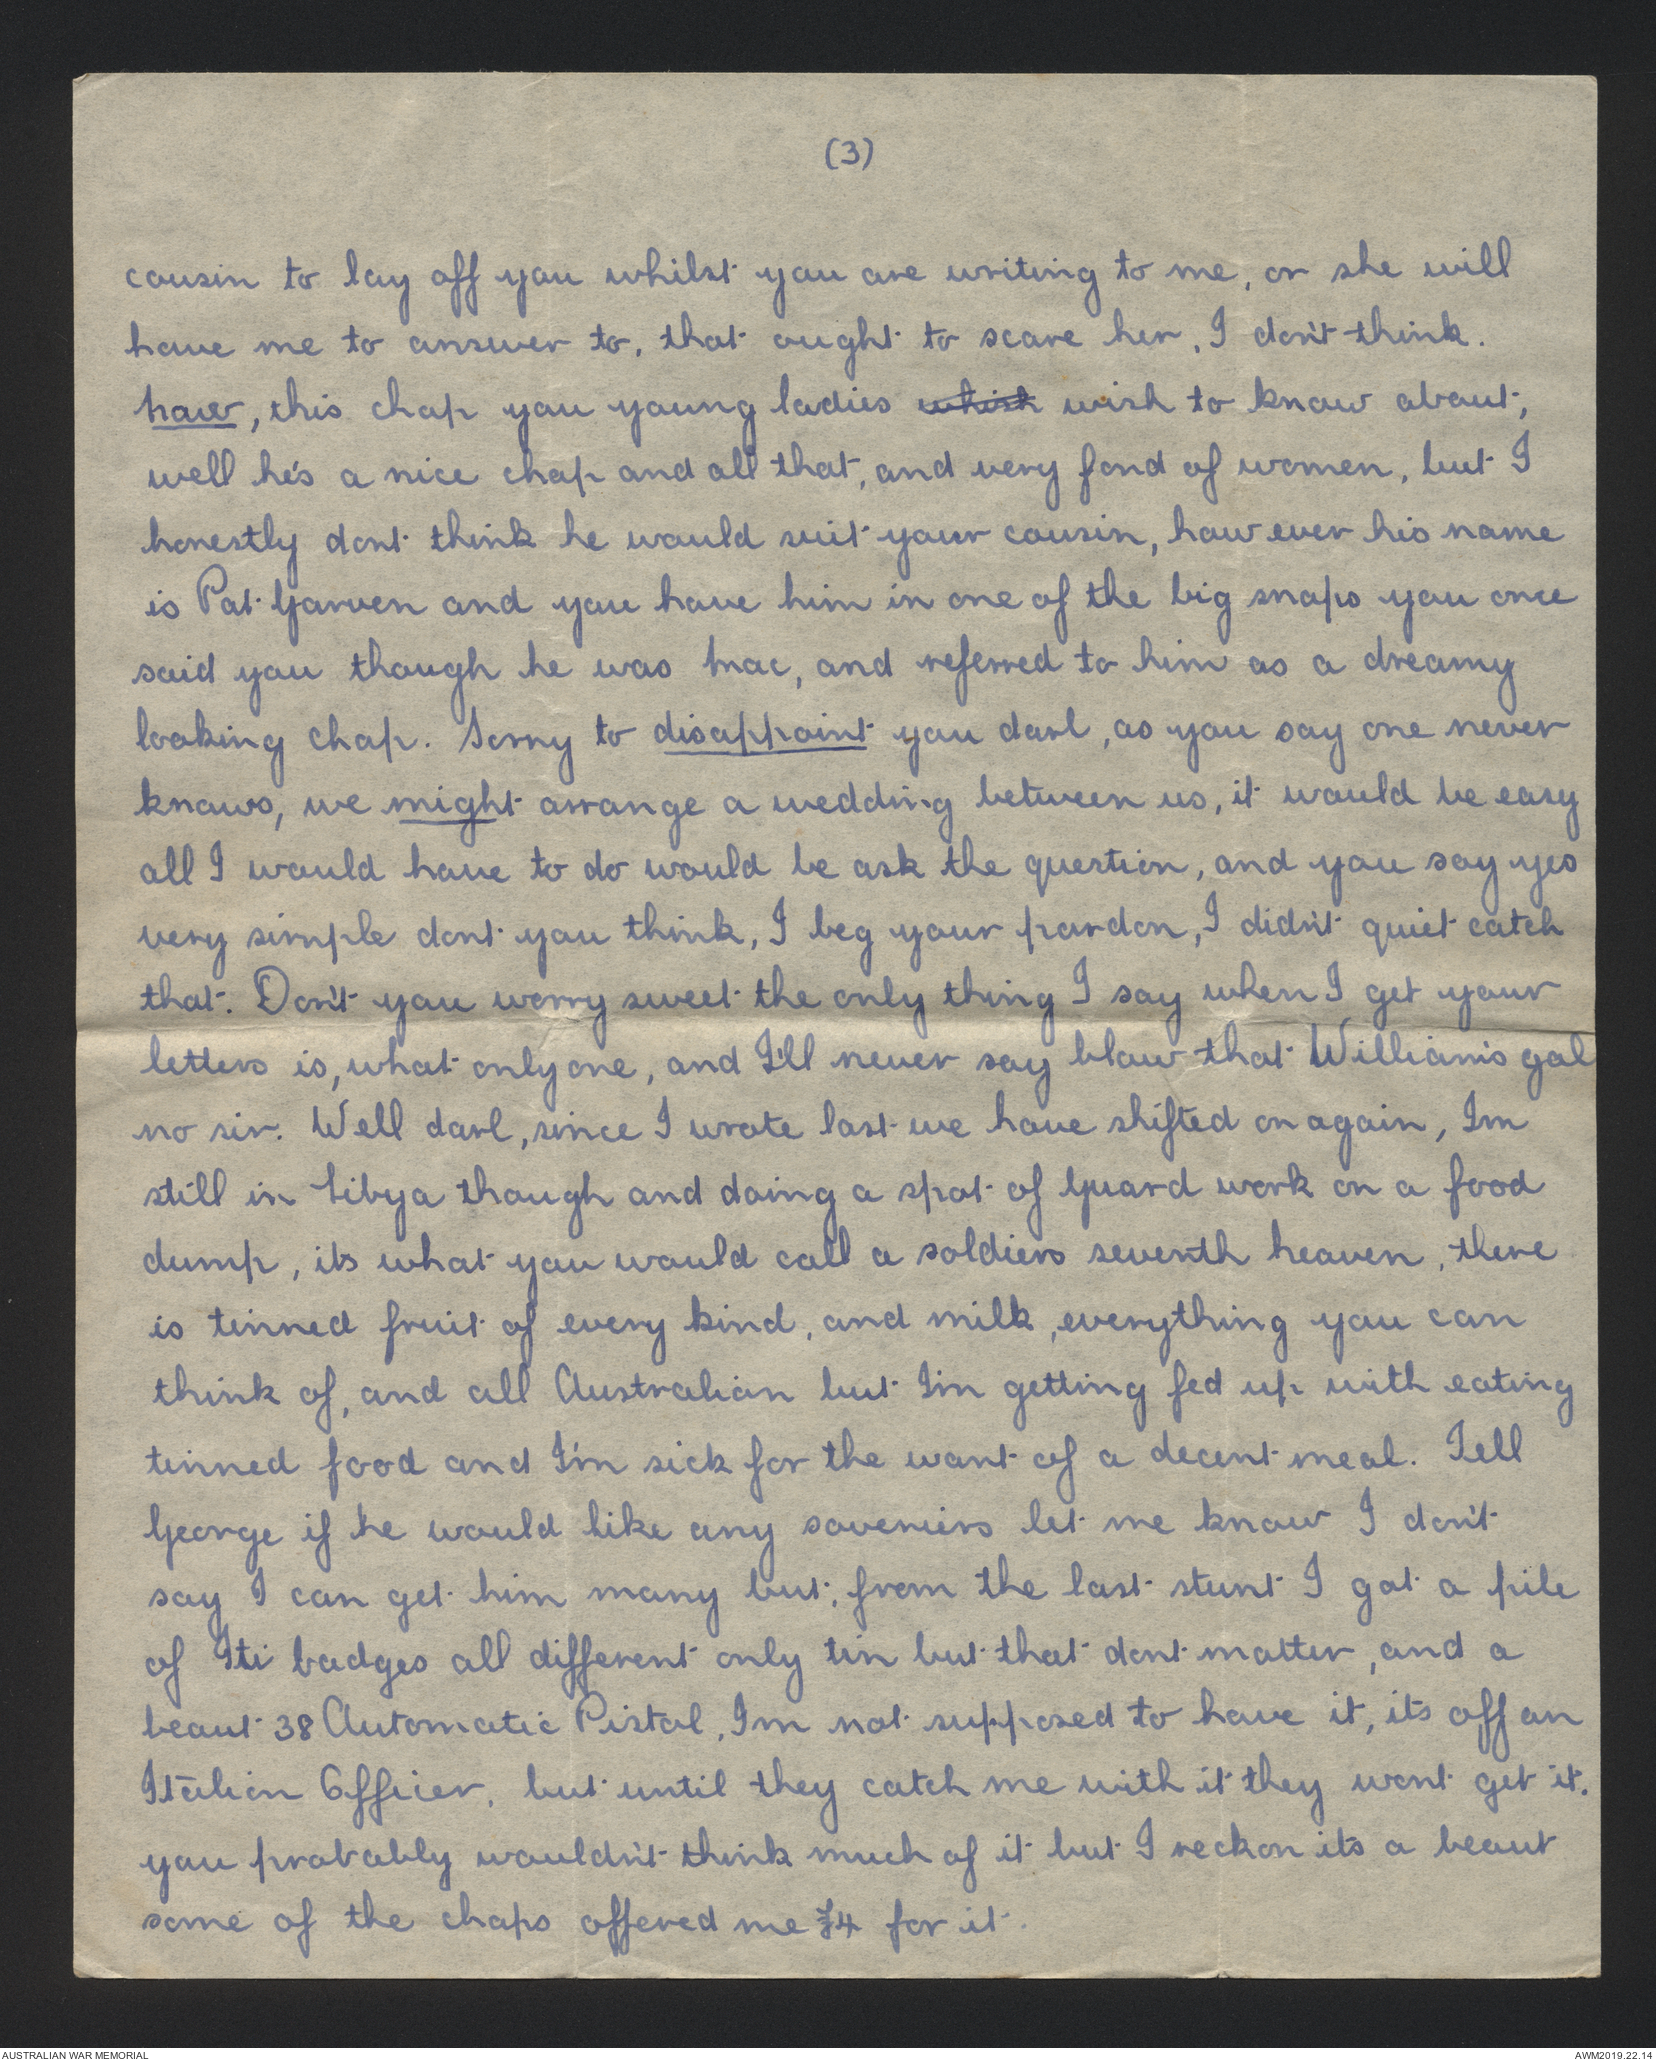 (3)
cousin to lay off you whilst you are writing to me, or she will
have me to answer to, that ought to scare her, I don't think.
haw, this chap you young ladies whish wish to know about,
well he's a nice chap and all that, and very fond of women, but I
honestly dont think he would suit your cousin, how ever his name
is Pat Garven and you have him in one of the big snaps you once
said you though he was Mac, and referred to him as a dreamy
looking chap. Sorry to disappoint you darl, as you say one never
knows, we might arrange a wedding between us, it would be easy
all I would have to do would be ask the question, and you say yes
very simple dont you think, I beg your pardon, I didn't quiet catch
that. Don't you worry sweet the only thing I say when I get your
letters is, what only one, and I'll never say blow that Williams gal
no sir. Well darl, since I wrote last we have shifted on again, Im
still in Libya though and doing a spot of guard work on a food
dump, its what you would call a soldiers seventh heaven, there
is tinned fruit of every kind, and milk, everything you can
think of, and all Australian but I'm getting fed up with eating
tinned food and I'm sick for the want of a decent meal. Tell
George if he would like any soveniers let me know I don't
say I can get him many but, from the last stunt I got a pile
of Iti badges all different only tin but that dont matter, and a
beaut 38 Automatic Pistol, Im not supposed to have it, its off an
Italian Officer, but until they catch me with it they wont get it.
you probably wouldn't think much of it but I reckon its a beaut
some of the chaps offered me £4 for it.
AUSTRALIAN WAR MEMORIAL
AWM2019.22.14